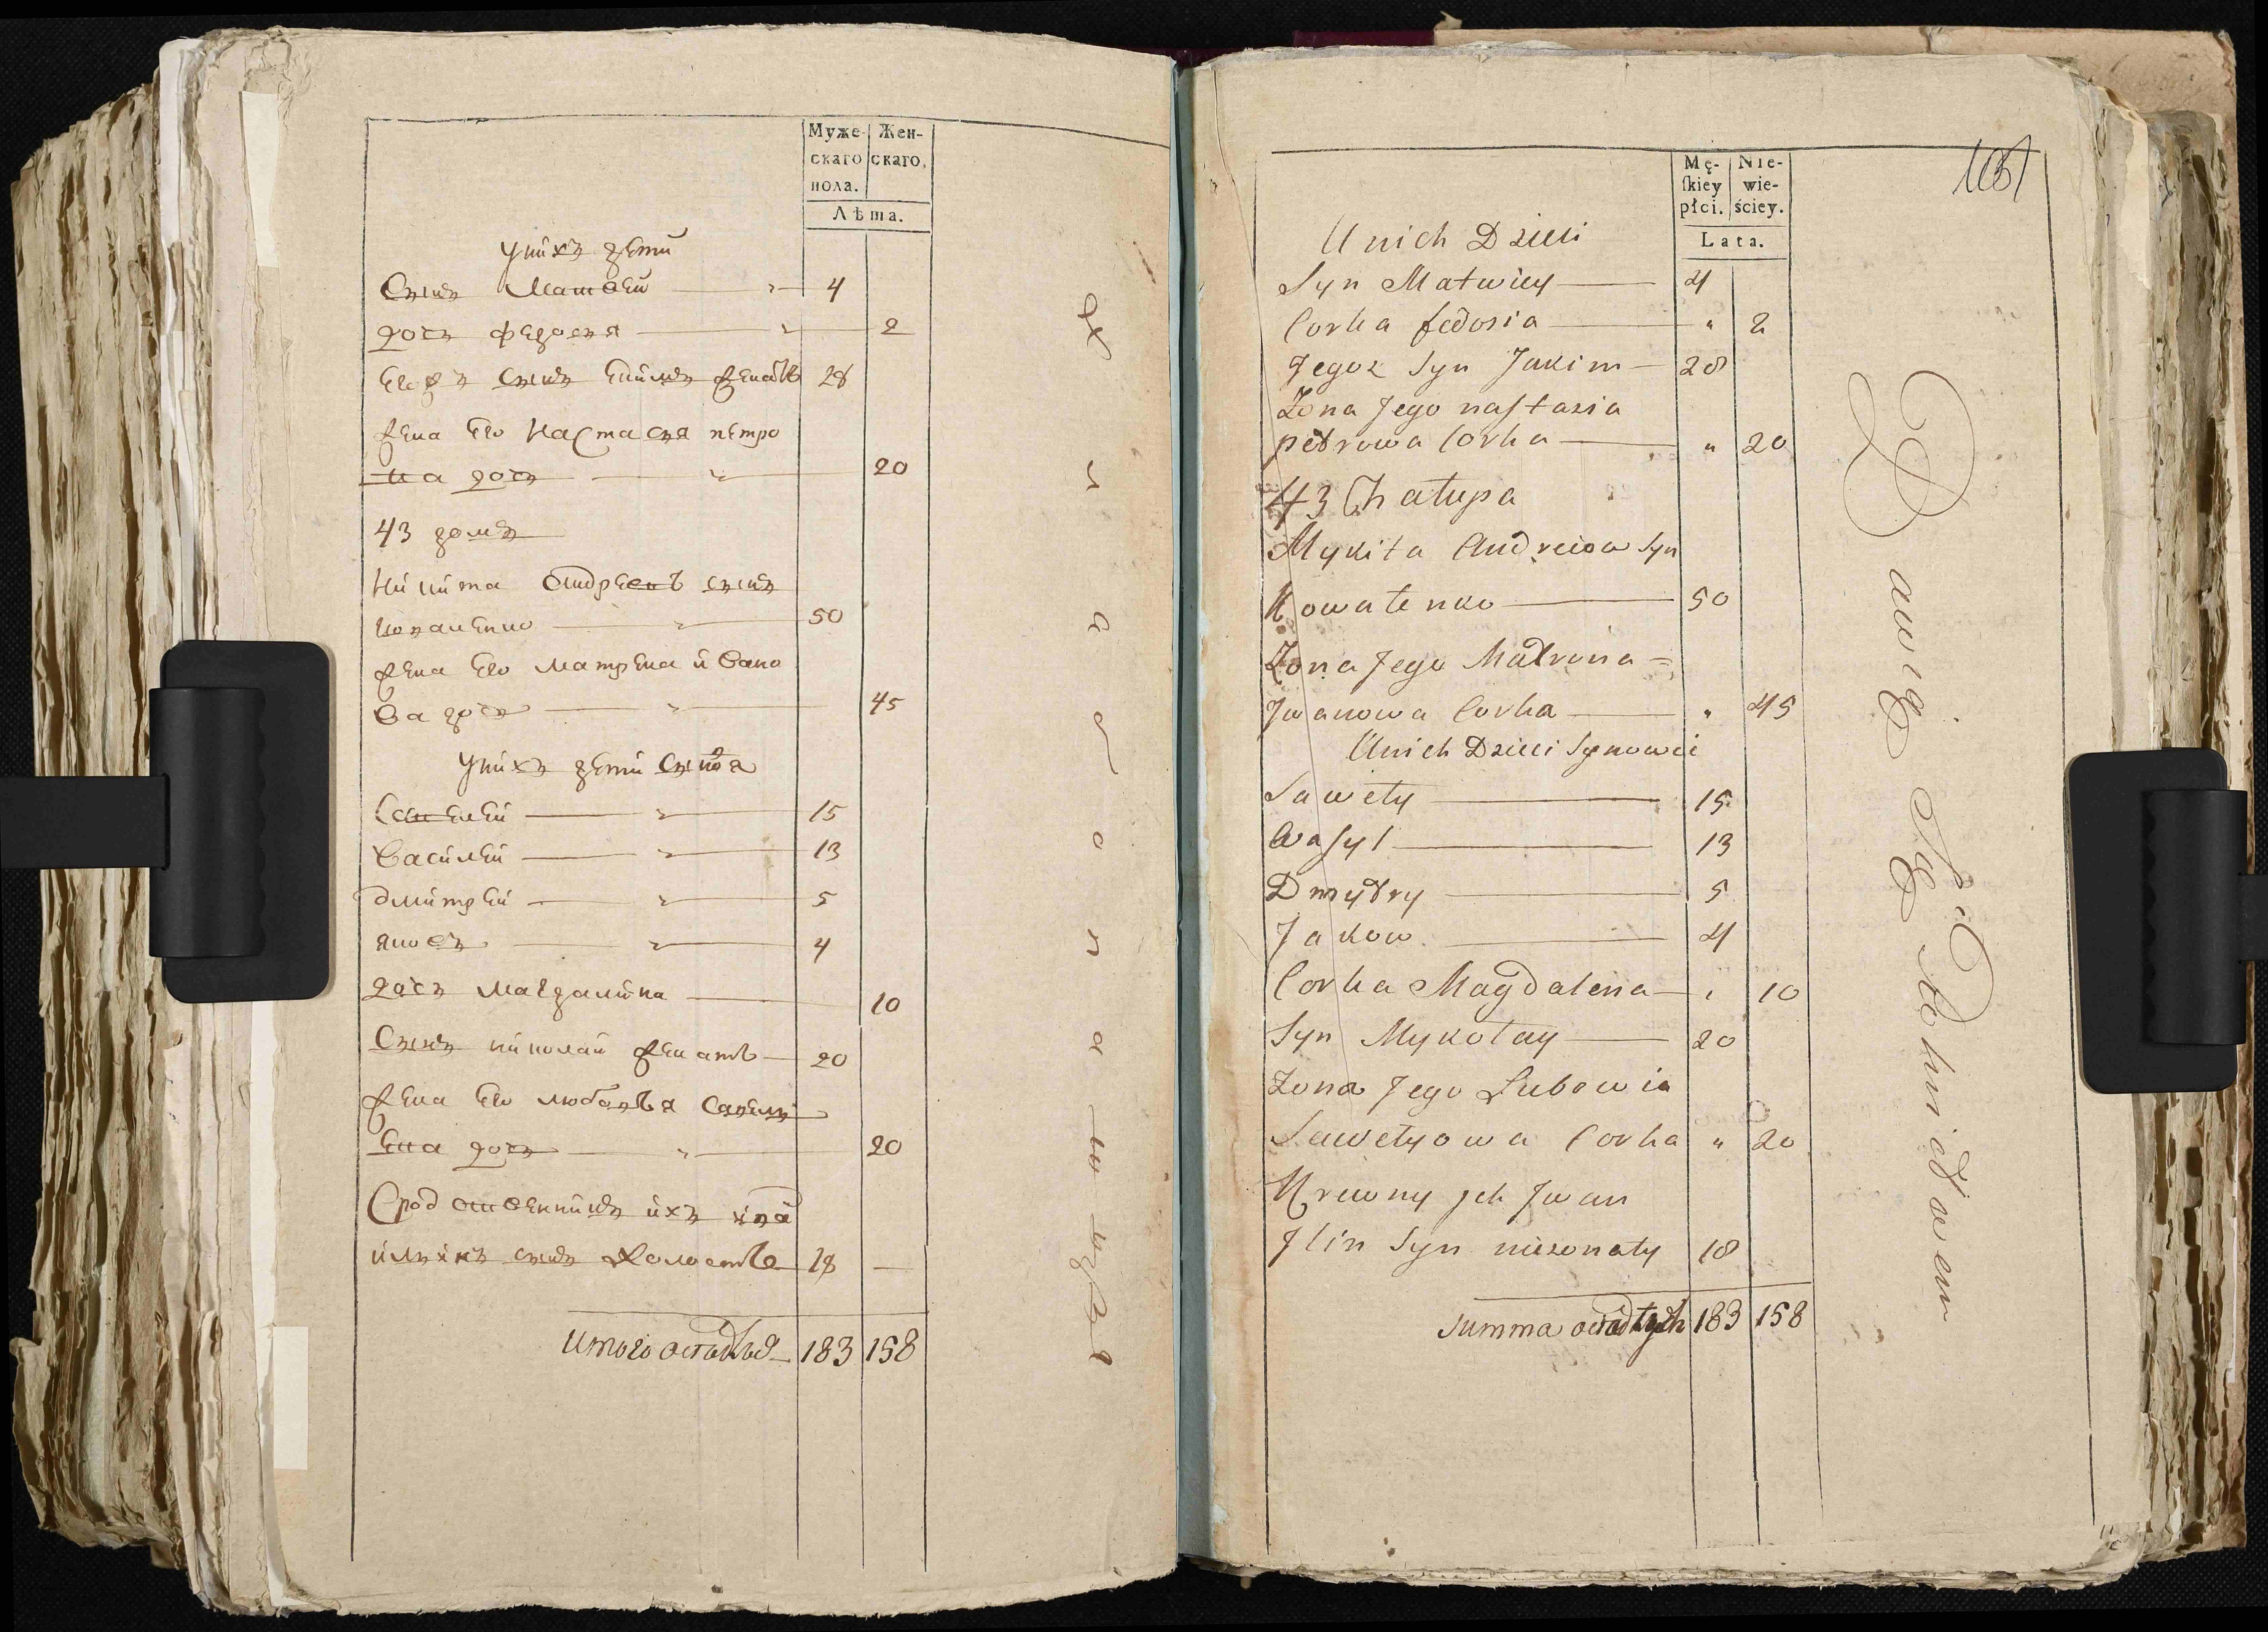 Муже-
скаго
пола.
Жен-
скаго.
Лѣта.
у нихъ дети
Сынъ Матвей 4
дочь Федосья 2
Егожъ сынъ Екимъ женатъ 28
жена Его Настасья петро
ва дочь 20
43 домъ
Никита Андреевъ сынъ
Коваленко 50
жена Его Матрена ивано
ва дочь 45
у нихъ дети сыновья
Савелей 15
Василей 13
дмитрей 5
яковъ 4
дочь магдалина 10
Сынъ николай женатъ 20
жена Его любовья савель
Ева дочь 20
Сродственникъ ихъ
ильинъ сынъ холостъ 18 —
Итого 183 158
Mę-
ſkiey
płci.
Nie-
wie-
ściey.
Lata.
U nich Dzieci
Syn Matwiey 4
Corka fedosia " 2
Jegoz Syn Jakim 28
Zona Jego nastazia
petrowa Corka " 20
43 Chałupa
Mykita Andreiow Syn
Kowalenko 50
Zona Jego Matrona =
Jwanowa Corka " 45
U nich Dzieci Synowie
Sawely 15
Wasyl 13
Dmytry 5
Jakow 4
Corka Magdalena " 10
Syn Mykołay 20
Zona Jego Lubowia
Sawelyowa Corka " 20
Krewny jch Jwan
Jlin Syn niezonaty 18
Summa osiadłych 183 158